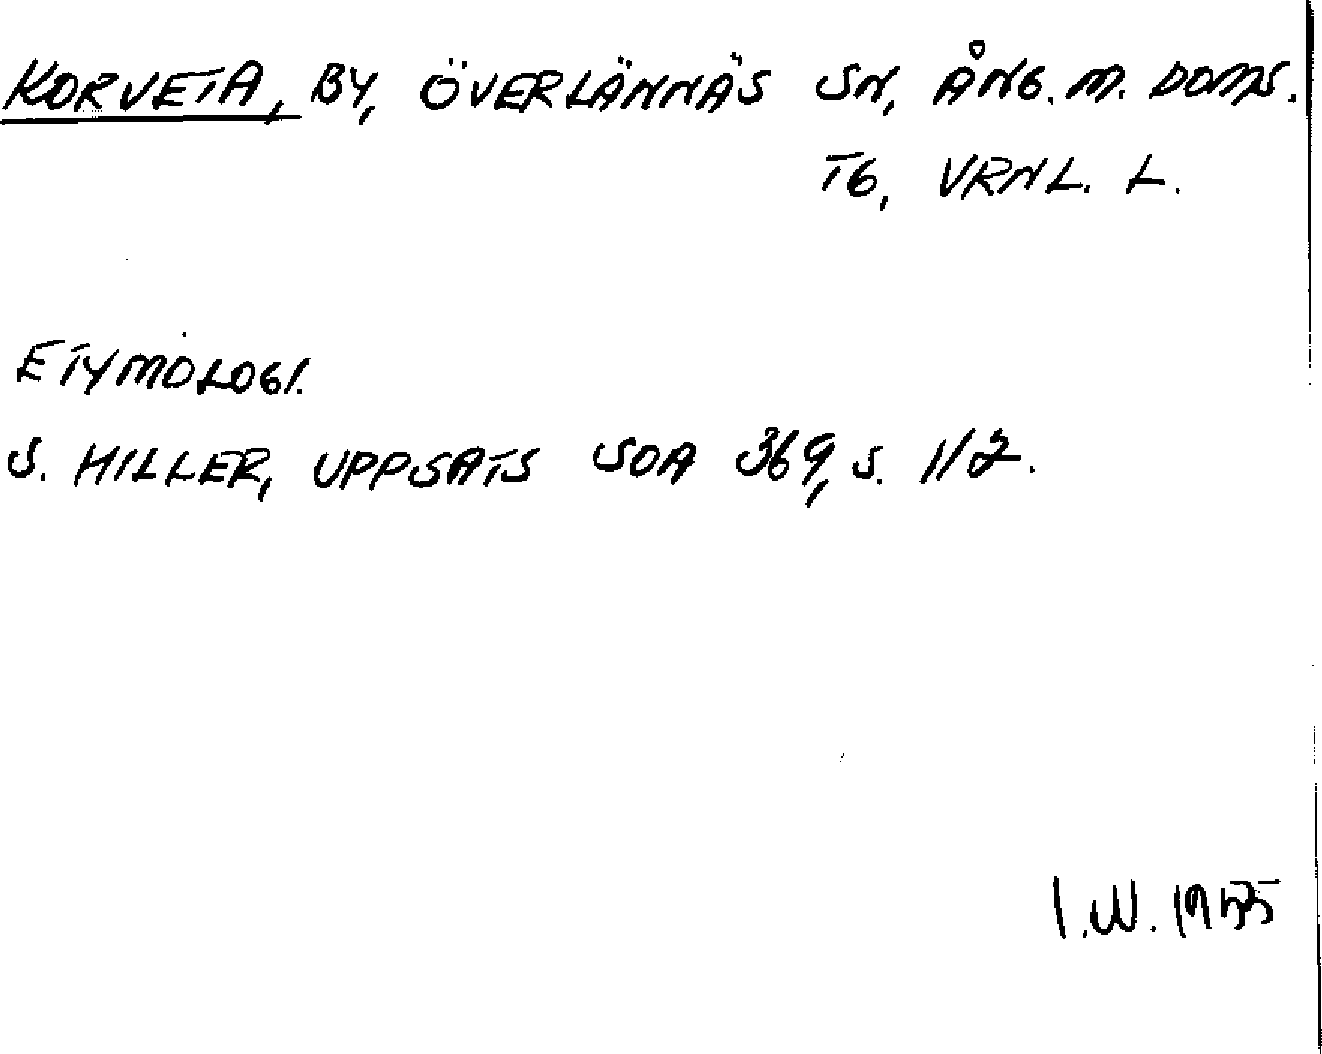 KORVETA, BY, ÖVERLÄNNÄS SN, ÅNG. M. DOMS.
TG, VRNL. L.
ETYMOLOGI.
S. HILLER, UPPSATS SOA 369, S. 112.
I.W. 1955